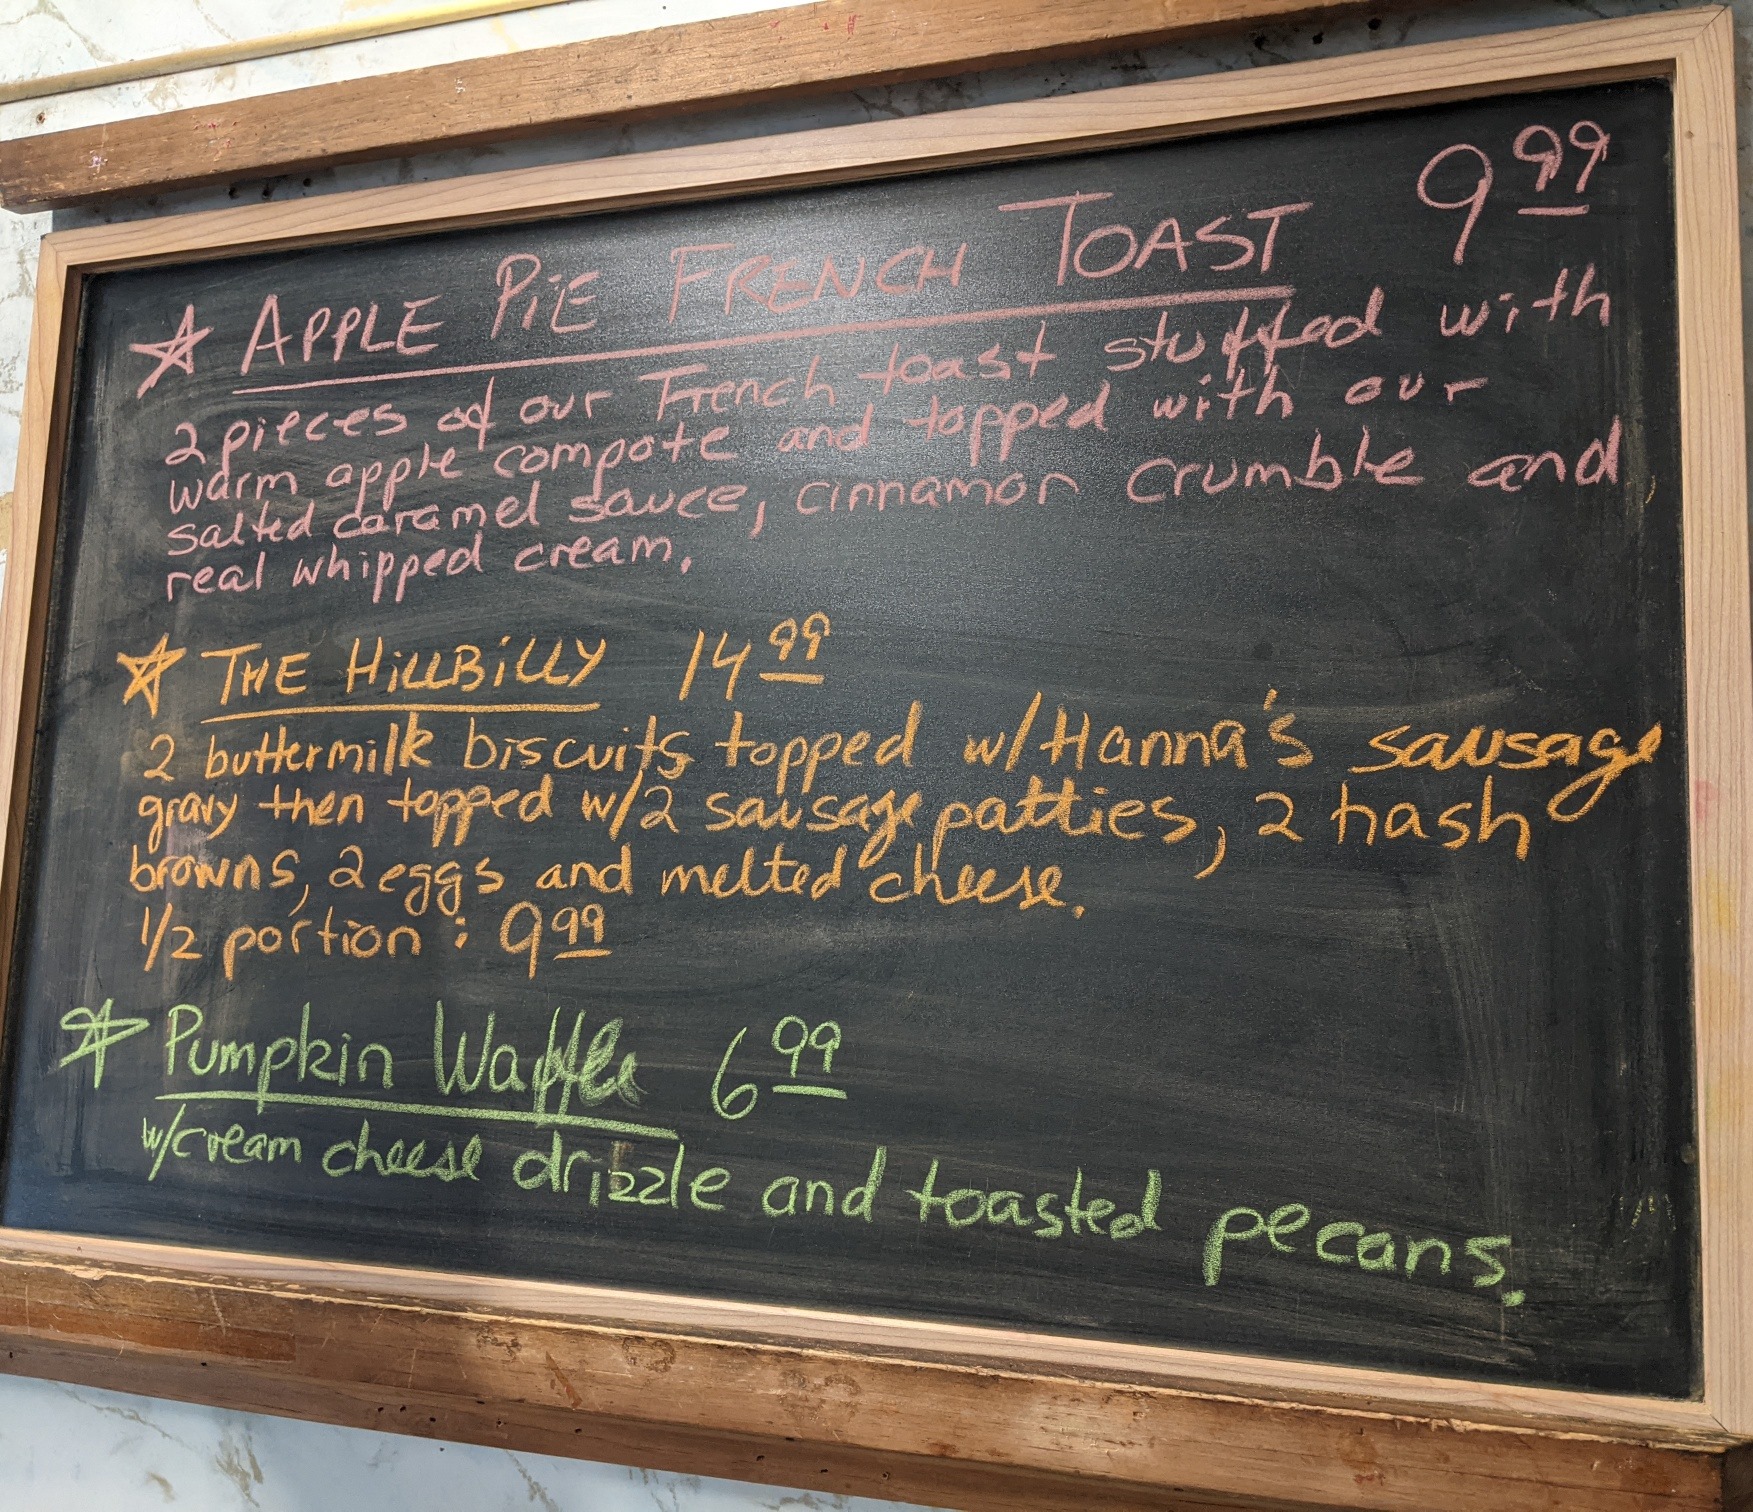 ☆ APPLE PIE FRENCH TOAST 9 99
2 pieces of our French toast stuffed with
warm apple compote and topped with our
salted caramel sauce, cinnamon crumble and
real whipped cream.
☆ THE HILLBILLY 14 99
2 buttermilk biscuits topped w/ Hanna's sausage
gravy then topped w/2 sausage patties, 2 hash
browns, 2 eggs and melted cheese.
1/2 portion: 9 99
☆ Pumpkin Waffle 6 99
w/cream cheese drizzle and toasted pecans.